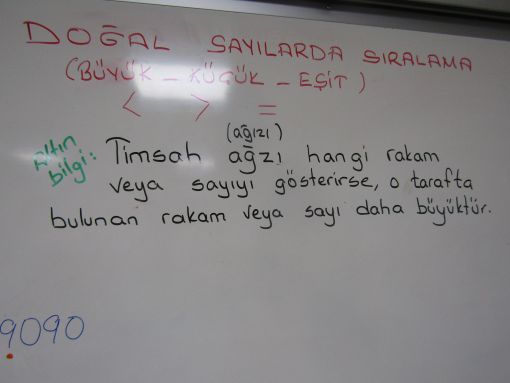 DOĞAL SAYILARDA SIRALAMA
(BÜYÜK - KÜÇÜK - EŞİT)
< > =
Altın
bilgi:
(ağızı)
Timsah ağzı hangi rakam
veya sayıyı gösterirse, o tarafta
bulunan rakam veya sayı daha büyüktür.
9090